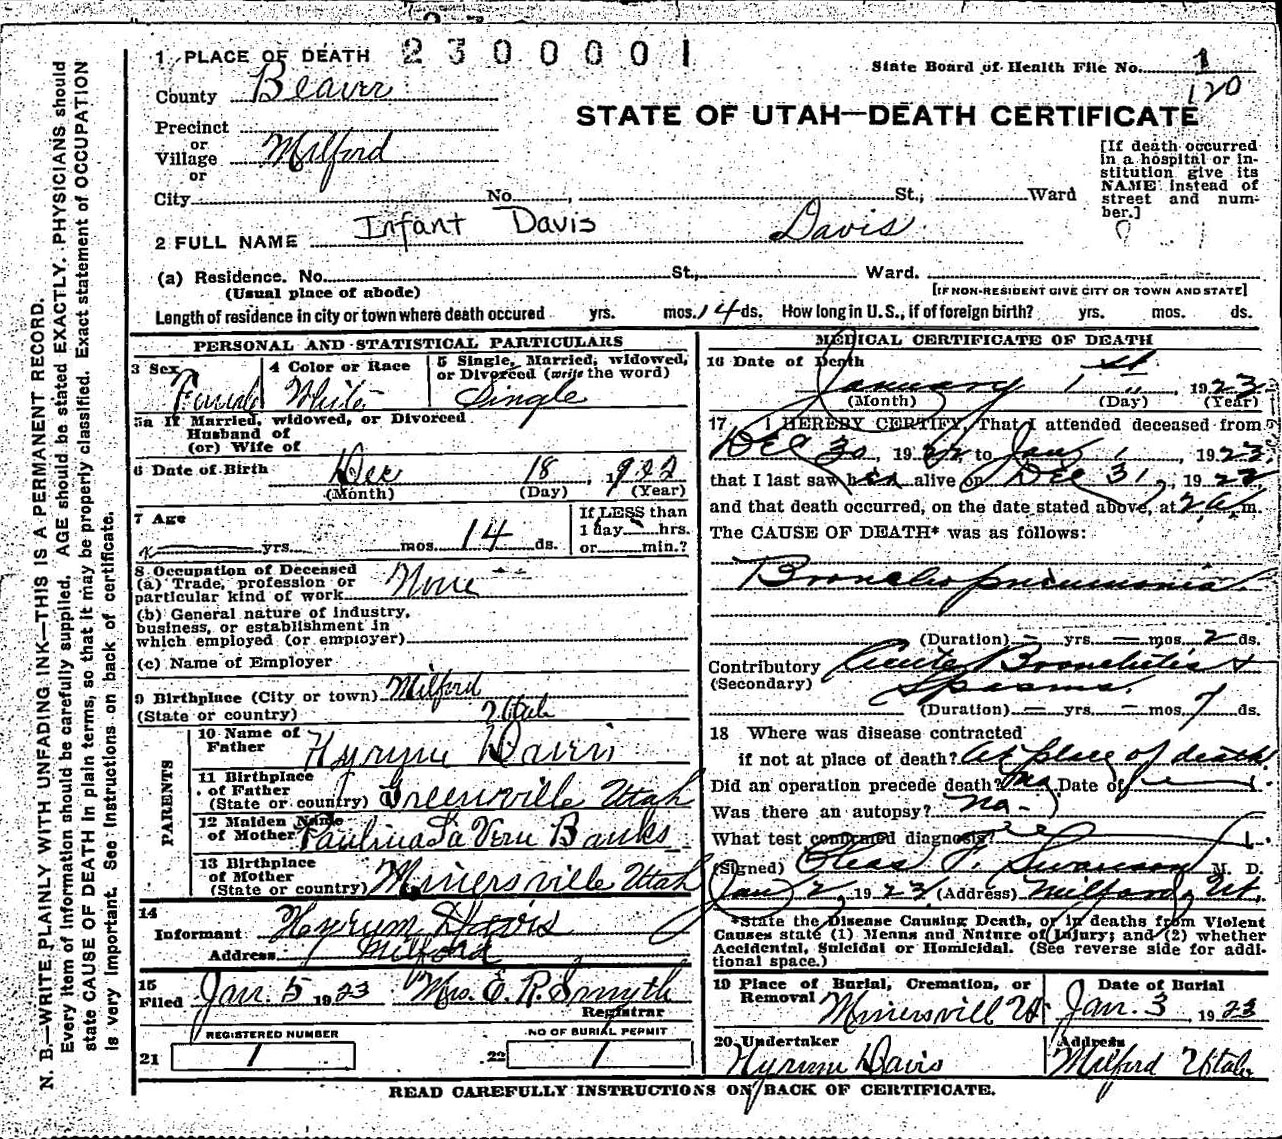 1 PLACE OF DEATH 2300001
State Board of Health File No. 1
120
County Beaver
STATE OF UTAH—DEATH CERTIFICATE
Precinct
or
Village Milford
or
City No. St., Ward
[If death occurred in a hospital or institution give its NAME instead of street and number.]
2 FULL NAME Infant Davis Davis
(a) Residence. No. St., Ward.
(Usual place of abode) [IF NON-RESIDENT GIVE CITY OR TOWN AND STATE]
Length of residence in city or town where death occured yrs. mos. 14 ds. How long in U.S., if of foreign birth? yrs. mos. ds.
PERSONAL AND STATISTICAL PARTICULARS
3 Sex Female
4 Color or Race White
5 Single, Married, widowed, or Divorced (write the word) Single
5a If Married, widowed, or Divorced
Husband of
(or) Wife of
6 Date of Birth Dec 18, 1922
(Month) (Day) (Year)
7 Age yrs. mos. 14 ds.
If LESS than
1 day hrs.
or min.?
8 Occupation of Deceased
(a) Trade, profession or
particular kind of work None
(b) General nature of industry,
business, or establishment in
which employed (or employer)
(c) Name of Employer
9 Birthplace (City or town) Milford
(State or country) Utah
PARENTS
10 Name of
Father Hyrum Davis
11 Birthplace
of Father
(State or country) Greenville Utah
12 Maiden Name
of Mother Paulina La Vern Banks
13 Birthplace
of Mother
(State or country) Minersville Utah
14
Informant Hyrum Davis
Address Milford
15
Filed Jan 5 1923 Mrs. E. R. Smyth
Registrar
REGISTERED NUMBER NO OF BURIAL PERMIT
21 1 22 1
MEDICAL CERTIFICATE OF DEATH
16 Date of Death
January 1st, 1923
(Month) (Day) (Year)
17 I HEREBY CERTIFY, That I attended deceased from
Dec 30, 1922 to Jan 1, 1923,
that I last saw her alive on Dec 31, 1922
and that death occurred, on the date stated above, at 2 A m.
The CAUSE OF DEATH* was as follows:
Bronchopneumonia.
(Duration) — yrs. — mos. 2 ds.
Contributory Acute Bronchitis &
(Secondary) Spasms.
(Duration) — yrs. — mos. 7 ds.
18 Where was disease contracted
if not at place of death? At place of death
Did an operation precede death? No Date of
Was there an autopsy? no.
What test confirmed diagnosis?
(Signed) Chas. T. Swanson M. D.
Jan 2, 1923 (Address) Milford, Ut.
*State the Disease Causing Death, or in deaths from Violent
Causes state (1) Means and Nature of Injury; and (2) whether
Accidental, Suicidal or Homicidal. (See reverse side for addi-
tional space.)
19 Place of Burial, Cremation, or Removal Minersvill Ut
Date of Burial Jan. 3, 1923
20 Undertaker Hyrum Davis
Address Milford Utah
READ CAREFULLY INSTRUCTIONS ON BACK OF CERTIFICATE.
N. B.—WRITE PLAINLY WITH UNFADING INK—THIS IS A PERMANENT RECORD.
Every item of information should be carefully supplied. AGE should be stated EXACTLY. PHYSICIANS should
state CAUSE OF DEATH in plain terms, so that it may be properly classified. Exact statement of OCCUPATION
is very important. See Instructions on back of certificate.